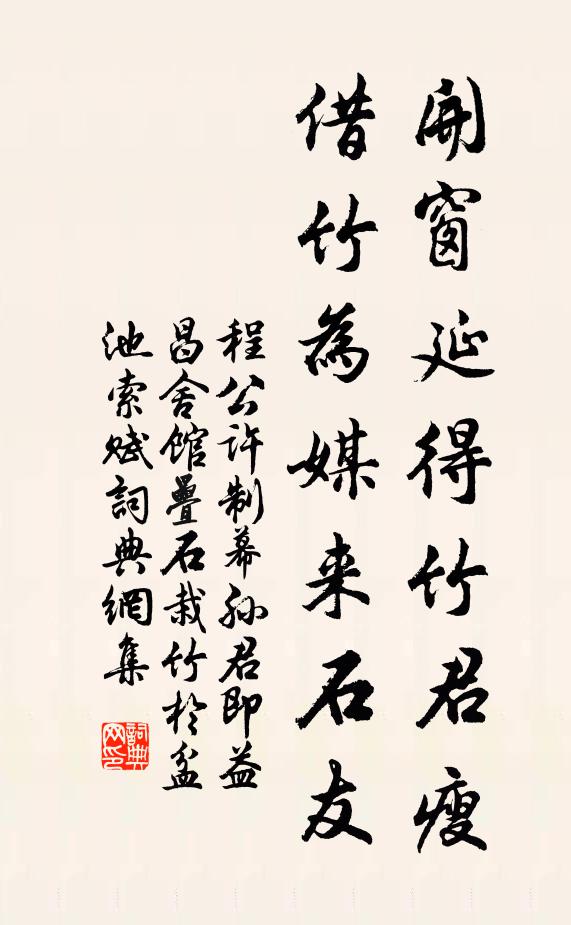 開窗延得竹君瘦
借竹為媒来石友
程公許制幕孫君即益
昌舍館疊石栽竹於盆
池索賦詞典網集
詞典网印